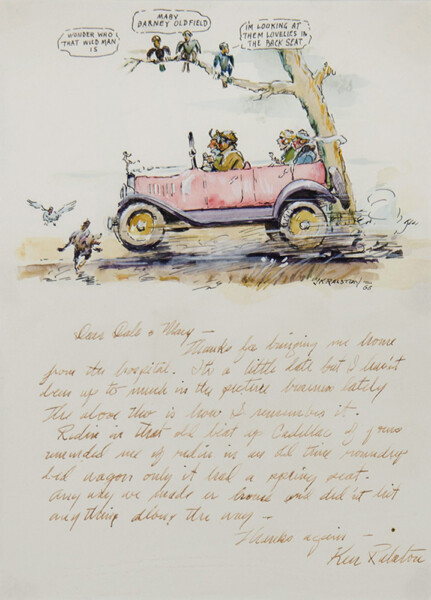 WONDER WHO
THAT WILD MAN
IS
MABY
BARNEY OLDFIELD
I'M LOOKING AT
THEM LOVELIES IN
THE BACK SEAT
J.K. RALSTON
Dear Dale & Mary —
Thanks for bringing me home
from the hospital. It's a little late but I hasn't
been up to much in the picture business lately
The above tho is how I remember it.
Ridin in that old beat up Cadillac of yours
reminded me of ridin in an old time roundup
bed wagon only it had a spring seat.
Anyway we made er home and didnt hit
anything along the way —
Thanks again —
Ken Ralston